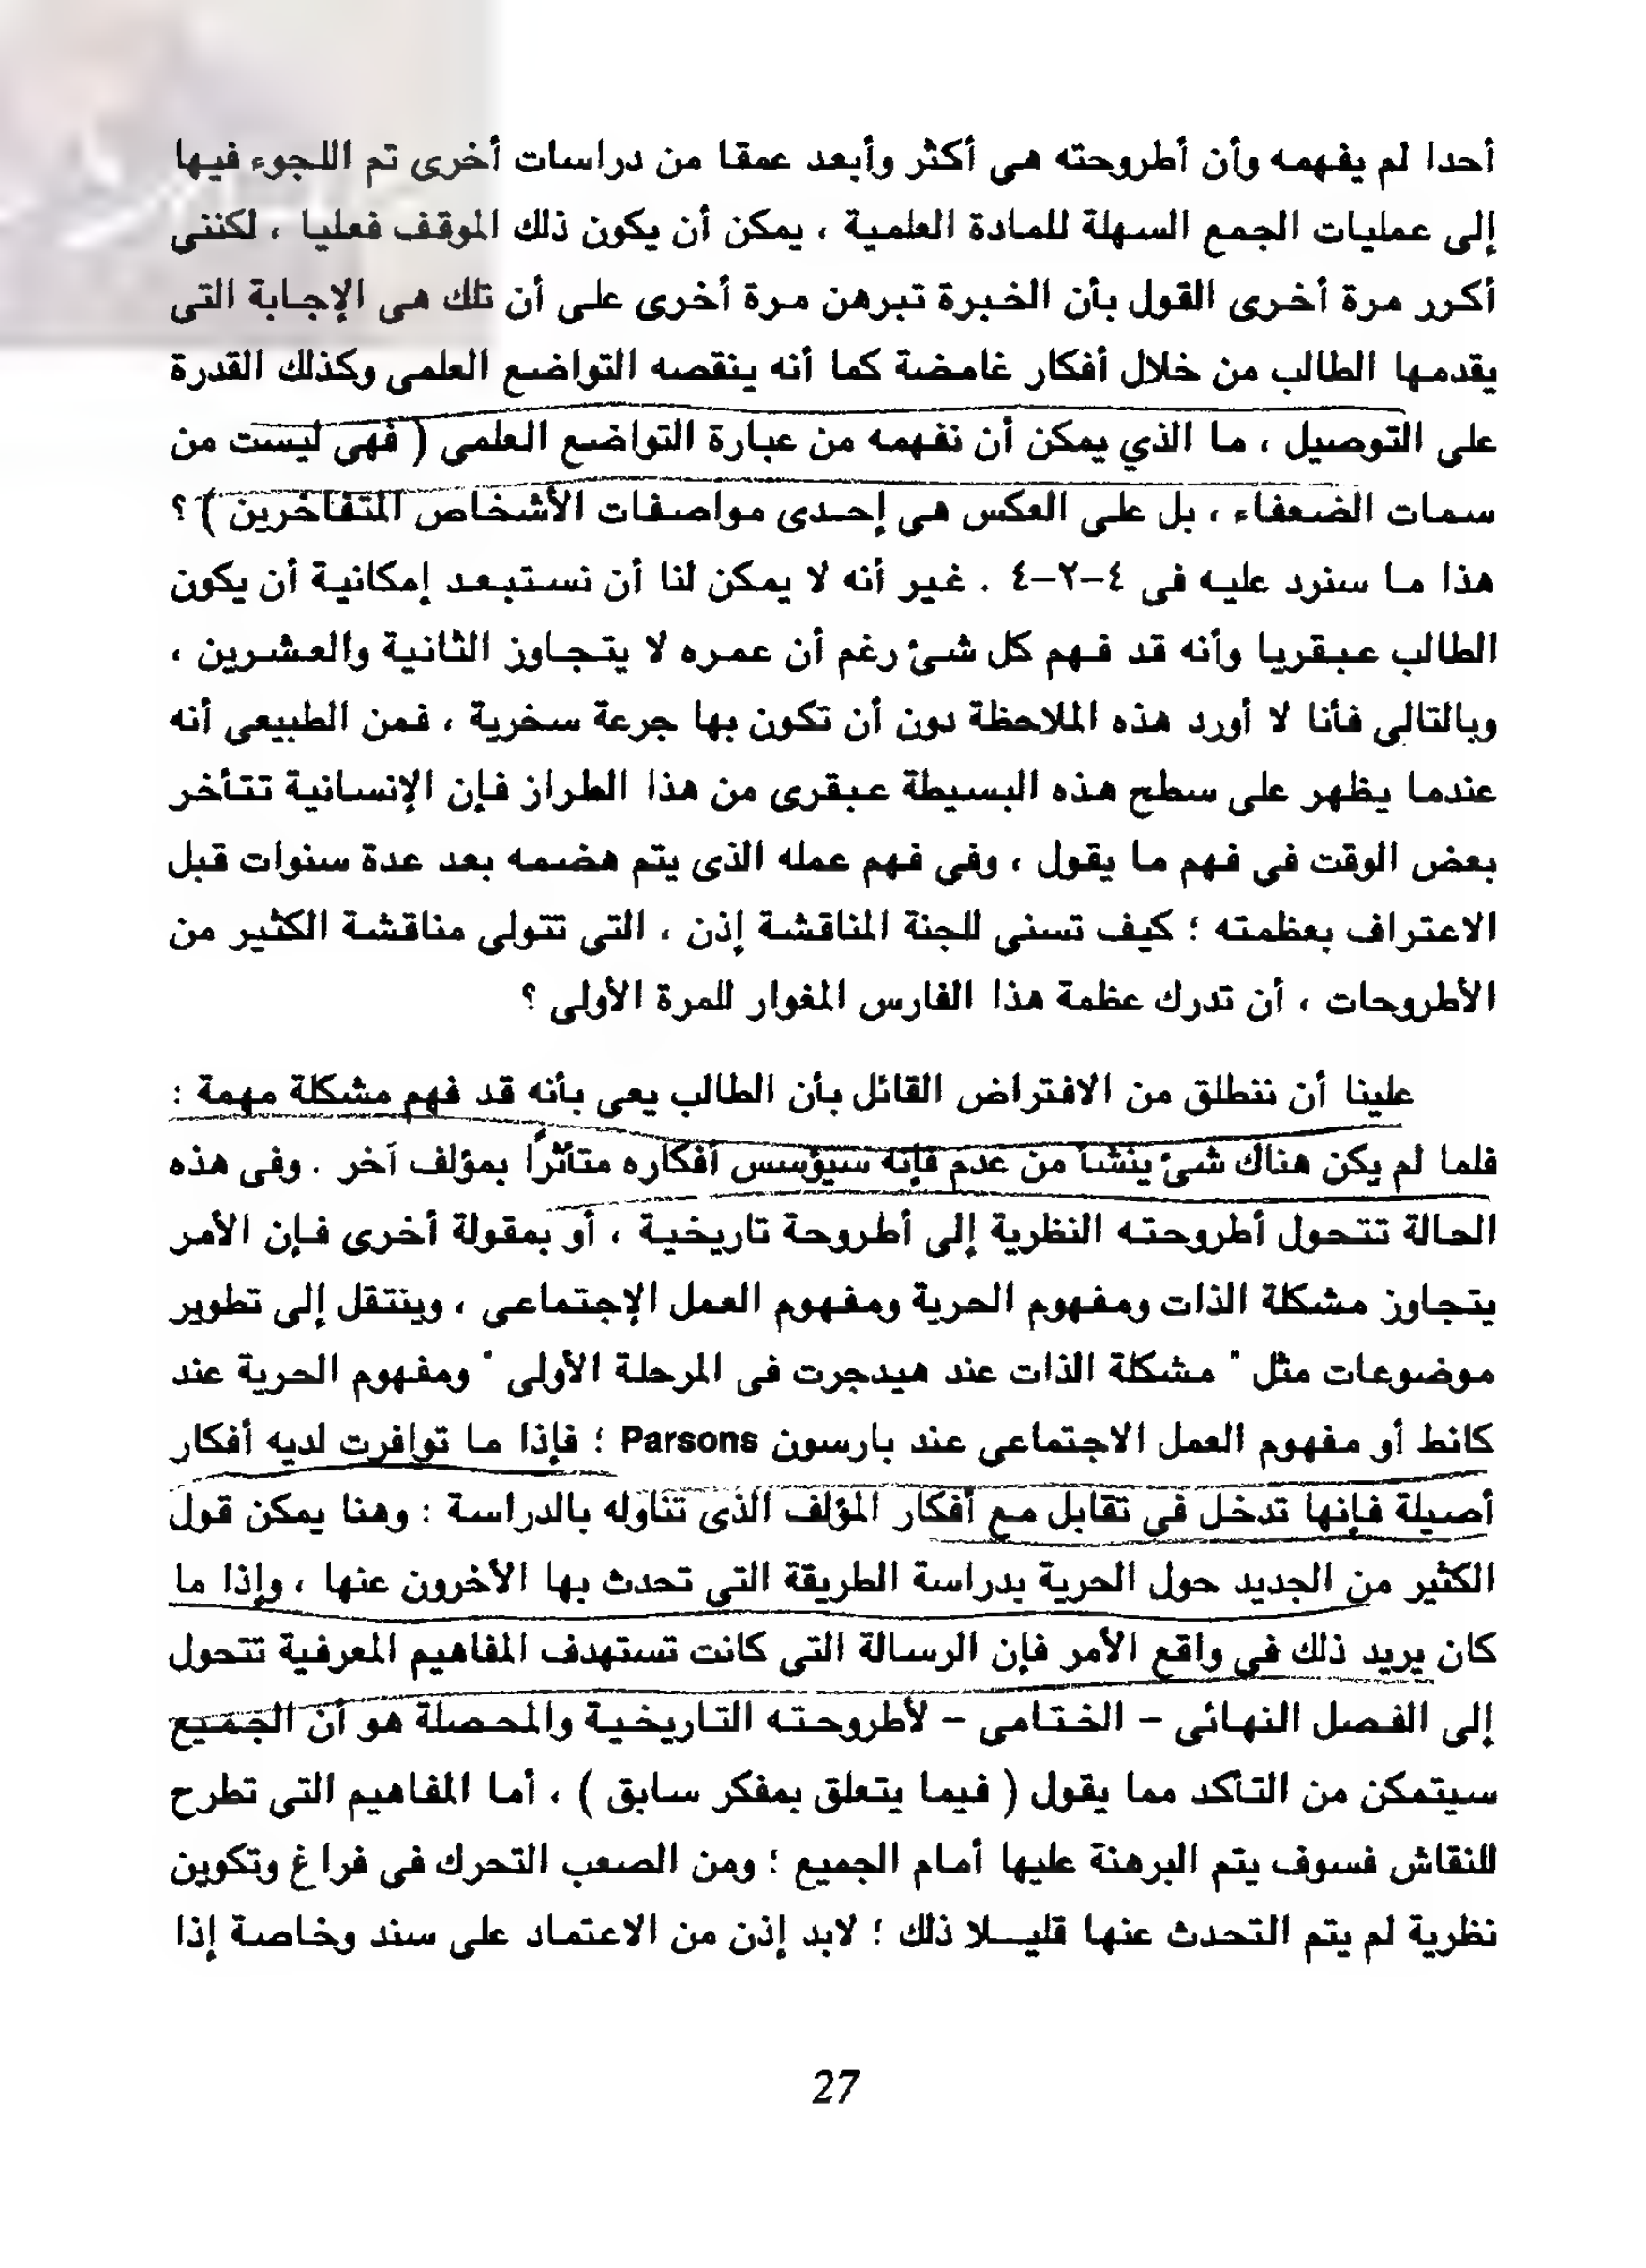 أحدا لم يفهمه وأن أطروحته هى أكثر وأبعد عمقا من دراسات أخرى تم اللجوء فيها
إلى عمليات الجمع السهلة للمادة العلمية ، يمكن أن يكون ذلك الموقف فعليا ، لكننى
أكرر مرة أخرى القول بأن الخبرة تبرهن مرة أخرى على أن تلك هى الإجابة التى
يقدمها الطالب من خلال أفكار غامضة كما أنه ينقصه التواضع العلمى وكذلك القدرة
على التوصيل ، ما الذي يمكن أن نفهمه من عبارة التواضع العلمى ( فهى ليست من
سمات الضعفاء ، بل على العكس هى إحدى مواصفات الأشخاص المتفاخرين ) ؟
هذا ما سنرد عليه فى ٤-٢-٤ . غير أنه لا يمكن لنا أن نستبعد إمكانية أن يكون
الطالب عبقريا وأنه قد فهم كل شئ رغم أن عمره لا يتجاوز الثانية والعشرين ،
وبالتالى فأنا لا أورد هذه الملاحظة دون أن تكون بها جرعة سخرية ، فمن الطبيعى أنه
عندما يظهر على سطح هذه البسيطة عبقرى من هذا الطراز فإن الإنسانية تتأخر
بعض الوقت فى فهم ما يقول ، وفى فهم عمله الذى يتم هضمه بعد عدة سنوات قبل
الاعتراف بعظمته ؛ كيف تسنى للجنة المناقشة إذن ، التى تتولى مناقشة الكثير من
الأطروحات ، أن تدرك عظمة هذا الفارس المغوار للمرة الأولى ؟
علينا أن ننطلق من الافتراض القائل بأن الطالب يعى بأنه قد فهم مشكلة مهمة :
فلما لم يكن هناك شئ ينشأ من عدم فإنه سيؤسس أفكاره متأثرًا بمؤلف آخر . وفى هذه
الحالة تتحول أطروحته النظرية إلى أطروحة تاريخية ، أو بمقولة أخرى فإن الأمر
يتجاوز مشكلة الذات ومفهوم الحرية ومفهوم العمل الإجتماعى ، وينتقل إلى تطوير
موضوعات مثل " مشكلة الذات عند هيدجرت فى المرحلة الأولى " ومفهوم الحرية عند
كانط أو مفهوم العمل الاجتماعى عند بارسون Parsons ؛ فإذا ما توافرت لديه أفكار
أصيلة فإنها تدخل فى تقابل مع أفكار المؤلف الذى تناوله بالدراسة : وهنا يمكن قول
الكثير من الجديد حول الحرية بدراسة الطريقة التى تحدث بها الأخرون عنها ، وإذا ما
كان يريد ذلك فى واقع الأمر فإن الرسالة التى كانت تستهدف المفاهيم المعرفية تتحول
إلى الفصل النهائى - الختامى - لأطروحته التاريخية والمحصلة هو أن الجميع
سيتمكن من التأكد مما يقول ( فيما يتعلق بمفكر سابق ) ، أما المفاهيم التى تطرح
للنقاش فسوف يتم البرهنة عليها أمام الجميع ؛ ومن الصعب التحرك فى فراغ وتكوين
نظرية لم يتم التحدث عنها قليلا ذلك ؛ لابد إذن من الاعتماد على سند وخاصة إذا
27